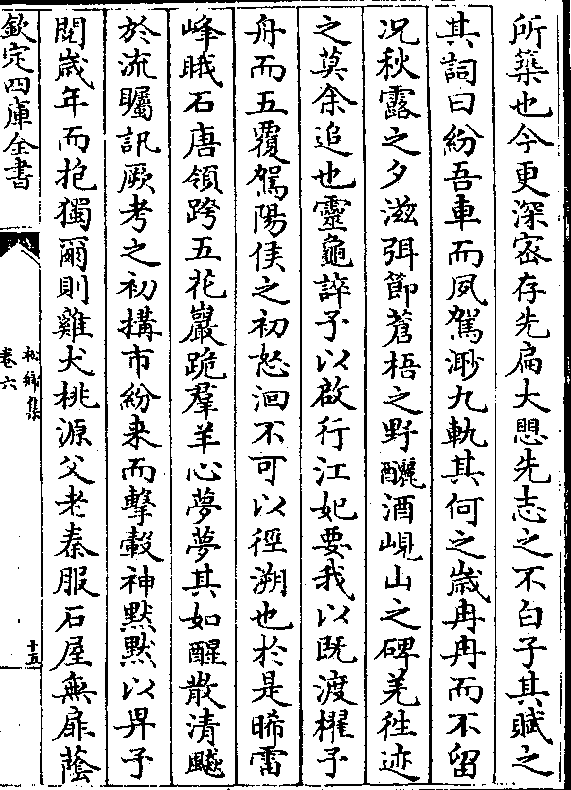 所築也今更深密存先扁大愳先志之不白子其賦之
其詞曰紛吾車而夙駕渺九軌其何之嵗冉冉而不留
况秋露之夕滋弭節蒼梧之野釃酒峴山之碑羌徃迹
之莫余追也靈龜誶予以啟行江妃要我以既渡櫂予
舟而五覆駕陽侯之初怒洄不可以徑溯也於是晞雷
峰睋石唐領跨五花巖跪羣羊心夢夢其如醒散清飈
於流矚訊厥考之初搆市紛来而擊轂神黙黙以畀予
閲嵗年而抱獨爾則雞犬桃源父老秦服石屋無扉蔭
欽定四庫全書
松鄉集
卷六
十五